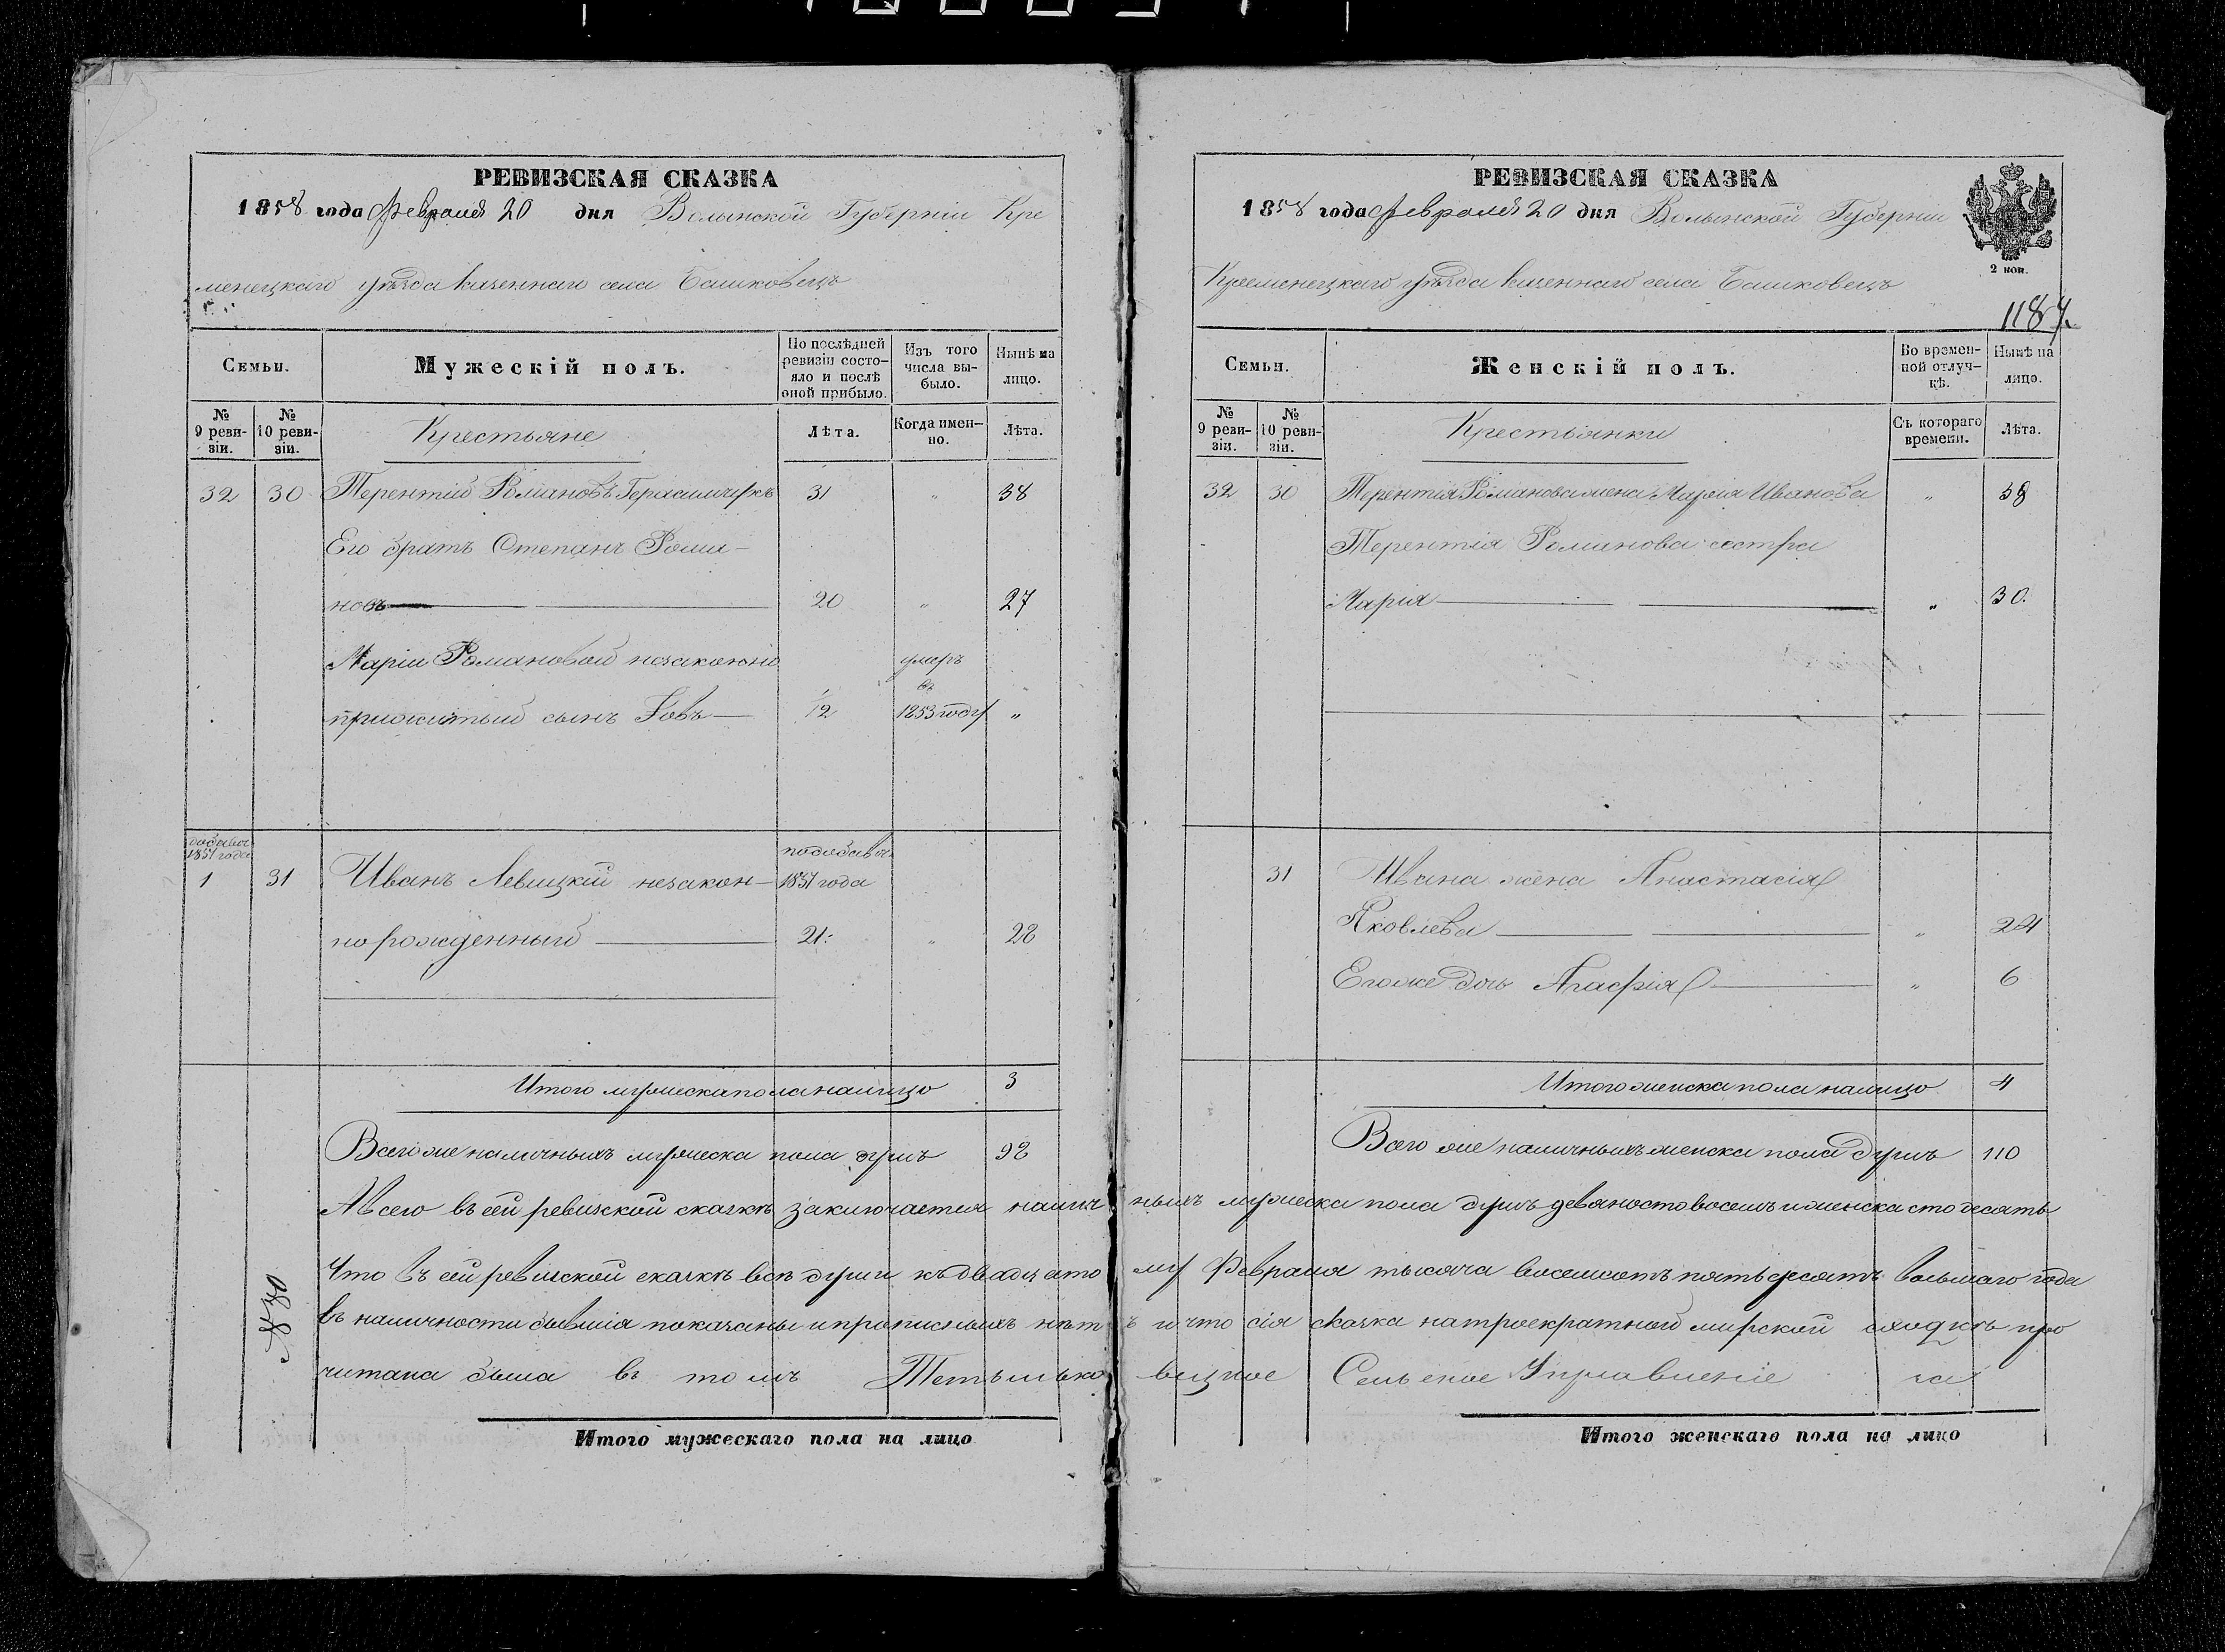 РЕВИЗСКАЯ СКАЗКА
1858 года Февраля 20 дня Волынской Губерніи Кре
менецкаго уѣзда казеннаго села Башковецъ
Семьи.
Мужескій полъ.
По послѣдней ревизіи состояло и послѣ оной прибыло.
Изъ того числа выбыло.
Нынѣ на лицо.
№ 9 ревизіи.
№ 10 ревизіи.
Крестьяне
Лѣта.
Когда именно.
Лѣта.
32 30 Терентій Романовъ Герасимчукъ 31 " 38
Его братъ Степанъ Рома-
новъ 20 " 27
Маріи Романовой незаконно умеръ
въ
прижитый сынъ Іовъ 1/2 1853 году "
1851 года
1 31 Иванъ Левицкій незакон- 1851 года
но рожденный 21 " 28
Итого мужеска пола налицо 3
Всего же наличныхъ мужеска пола душъ 98
А всего въ сей ревизской сказкѣ заключается налич
Что въ сей ревизской сказкѣ всѣ души къ двадцато
въ наличности бывшія показаны и прописныхъ нѣт
читана была въ томъ Тетылько
№ 30
Итого мужескаго пола на лицо
РЕВИЗСКАЯ СКАЗКА
1858 года Февраля 20 дня Волынской Губерніи
2 коп.
Кременецкаго уѣзда казеннаго села Башковецъ
1187.
Семьи.
Женскій полъ.
Во временной отлучкѣ.
Нынѣ на лицо.
№ 9 ревизіи.
№ 10 ревизіи.
Крестьянки
Съ котораго времени.
Лѣта.
32 30 Терентія Романова жена Марія Иванова " 38
Терентія Романова сестра
Марія " 30.
31 Ивана жена Анастасія
Яковлева " 24
Егоже дочь Агафія " 6
Итого женска пола налицо 4
Всего же наличныхъ женска пола душъ 110
ныхъ мужеска пола душъ девяносто восемь и женска сто десять
му Февраля тысяча восемсотъ пятьдесятъ восьмаго года
ъ и что сія сказка на троекратной мирской сходкѣ про
вицкое Сельское Управленіе
Итого женскаго пола на лицо